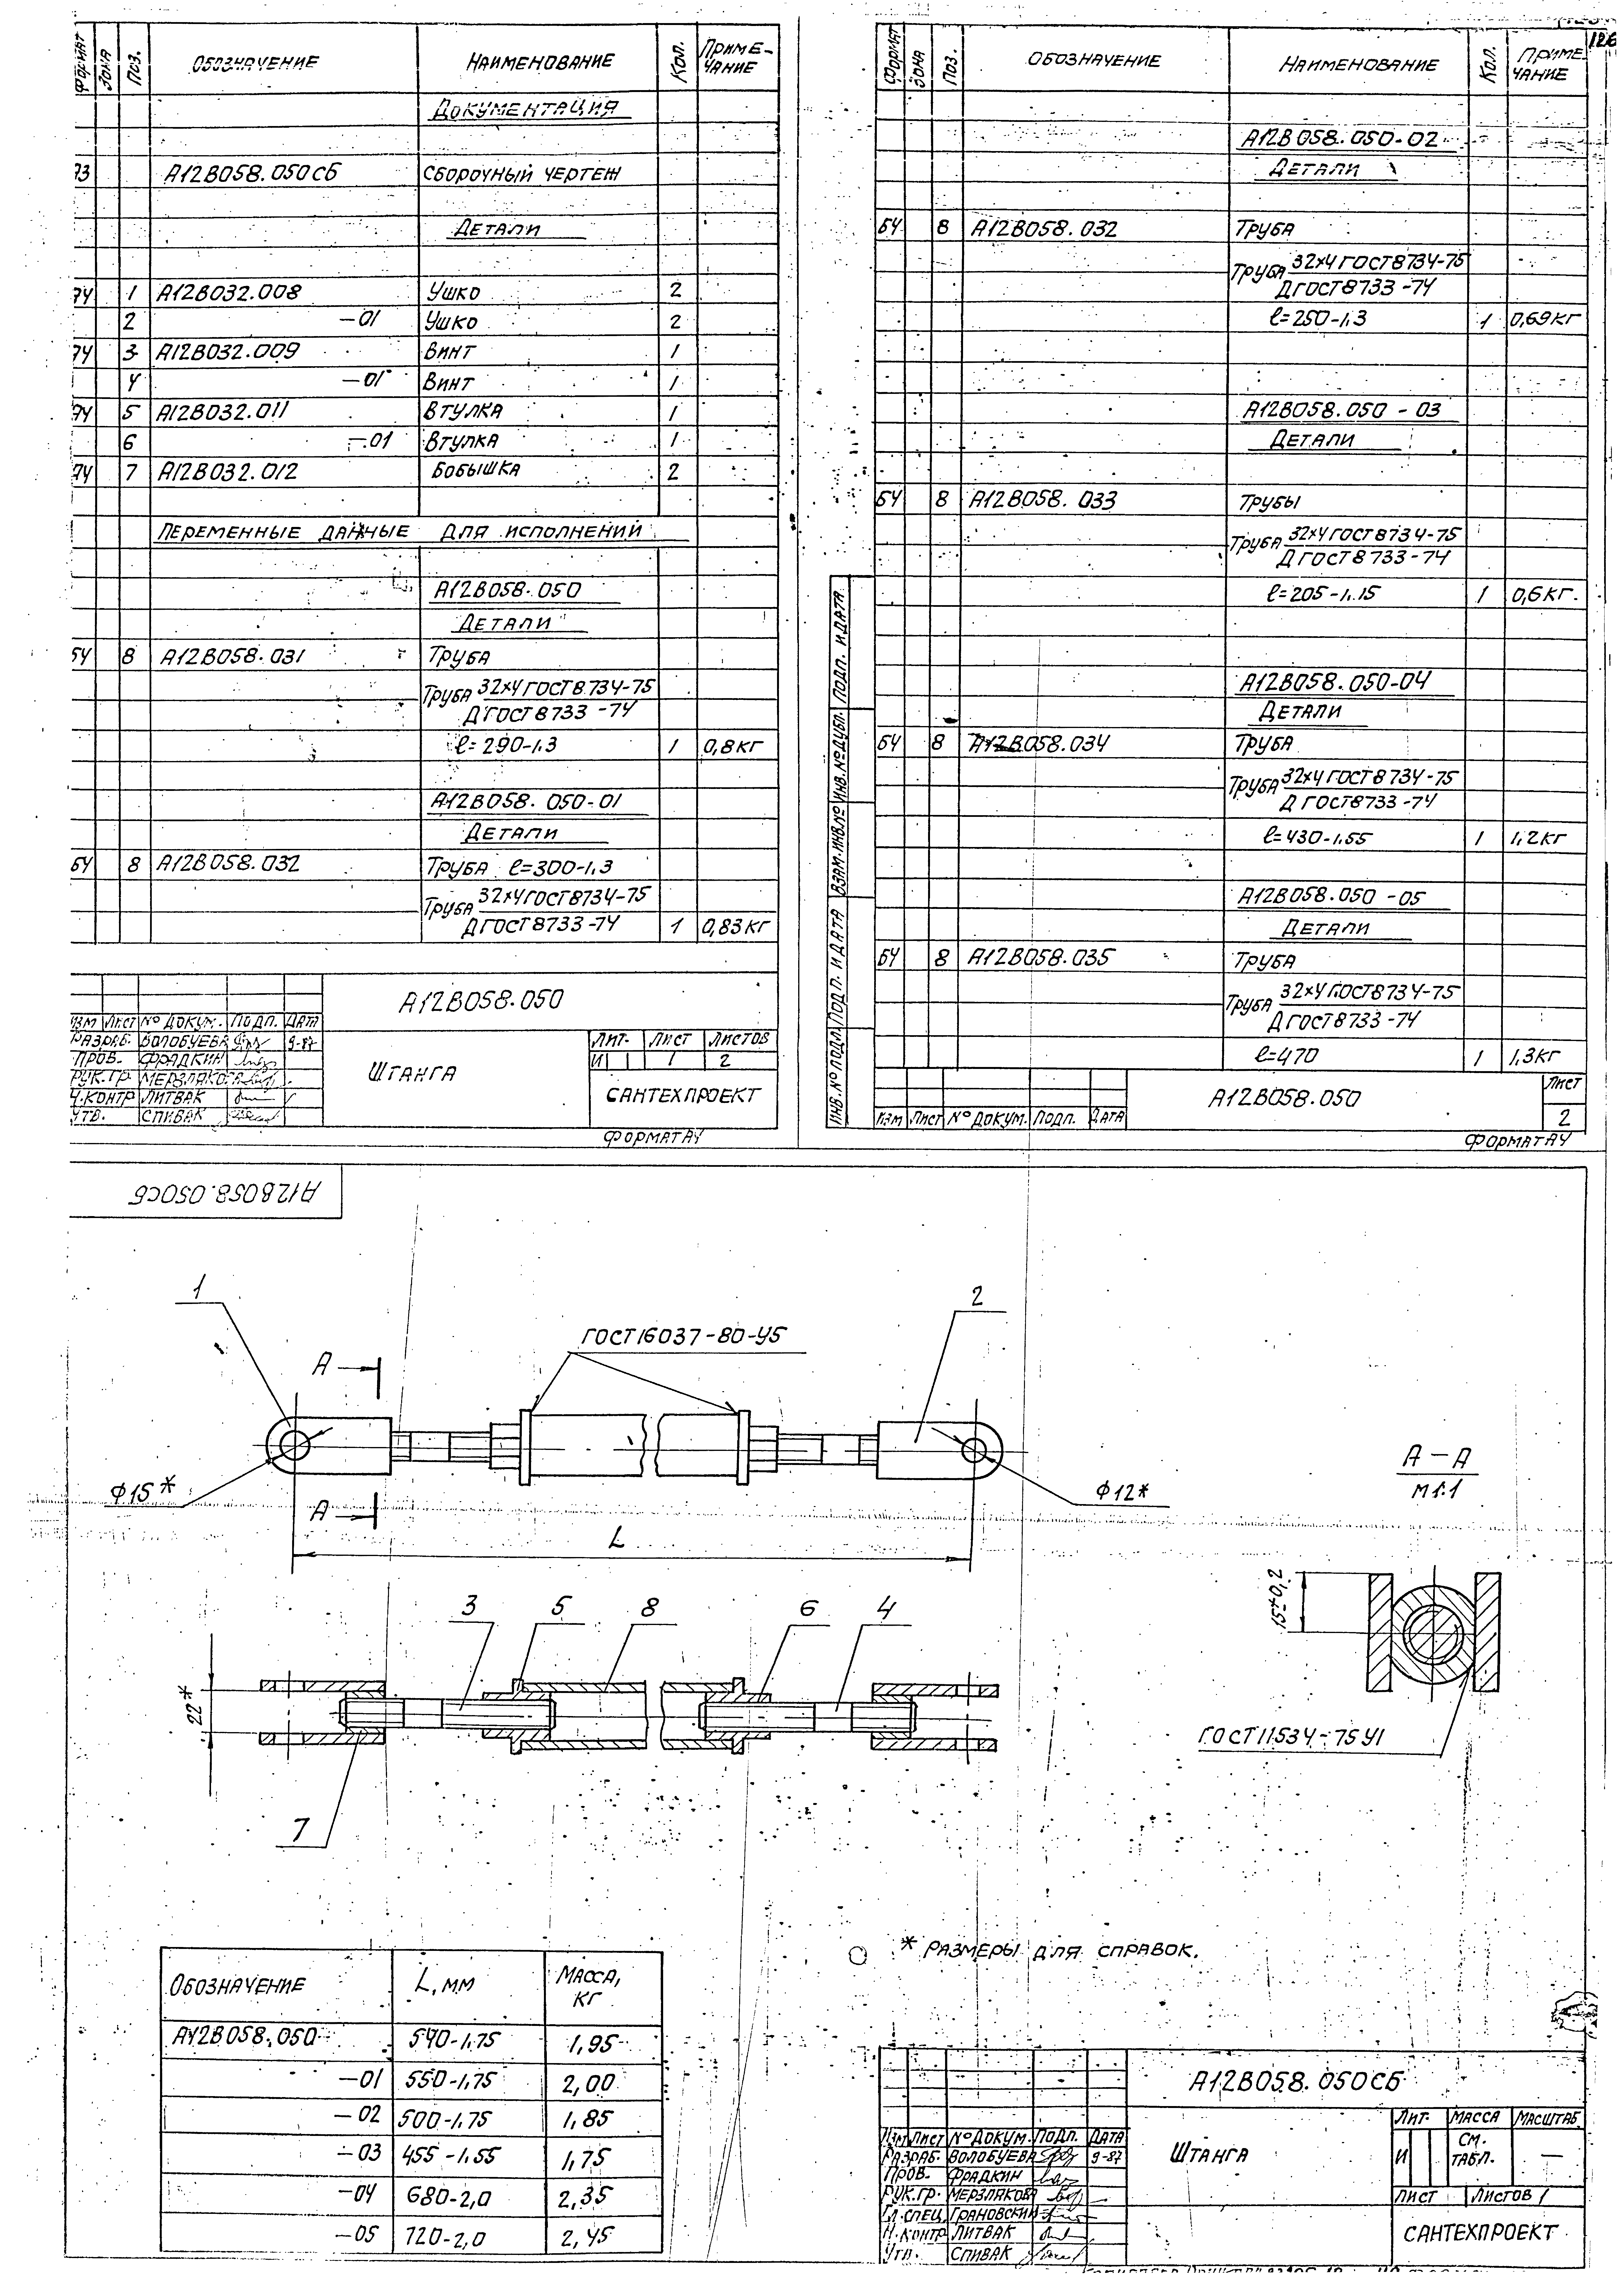 Формат Зона Поз. Обозначение Наименование Кол. Примечание
Документация
А12В058.050СБ Сборочный чертеж
Детали
1 А12В032.008 Ушко 2
2 -01 Ушко 2
3 А12В032.009 Винт 1
4 -01 Винт 1
5 А12В032.011 Втулка 1
6 -01 Втулка 1
7 А12В032.012 Бобышка 2
Переменные данные для исполнений
А12В058.050
Детали
БЧ 8 А12В058.031 Труба
Труба 32×4 ГОСТ 8734-75
Д ГОСТ 8733-74
ℓ=290-1,3 1 0,8 кг
А12В058.050-01
Детали
БЧ 8 А12В058.032 Труба ℓ=300-1,3
Труба 32×4 ГОСТ 8734-75
Д ГОСТ 8733-74 1 0,83 кг
А12В058.050
Изм Лист № докум. Подп. Дата
Разраб. Волобуева 9-87
Пров. Фрадкин
Рук.гр. Мерзлякова
Н.контр Литвак
Утв. Спивак
Штанга
Лит. Лист Листов
И 1 2
САНТЕХПРОЕКТ
Формат А4
126
Формат Зона Поз. Обозначение Наименование Кол. Примечание
А12В058.050-02
Детали
БЧ 8 А12В058.032 Труба
Труба 32×4 ГОСТ 8734-75
Д ГОСТ 8733-74
ℓ=250-1,3 1 0,69 кг
А12В058.050-03
Детали
БЧ 8 А12В058.033 Трубы
Труба 32×4 ГОСТ 8734-75
Д ГОСТ 8733-74
ℓ=205-1,15 1 0,6 кг.
А12В058.050-04
Детали
БЧ 8 А12В058.034 Труба
Труба 32×4 ГОСТ 8734-75
Д ГОСТ 8733-74
ℓ=430-1,55 1 1,2 кг
А12В058.050-05
Детали
БЧ 8 А12В058.035 Труба
Труба 32×4 ГОСТ 8734-75
Д ГОСТ 8733-74
ℓ=470 1 1,3 кг
Инв.№ подл. Подп. и дата Взам.инв.№ Инв.№ дубл. Подп. и дата
Изм Лист № докум. Подп. Дата
А12В058.050
Лист
2
Формат А4
А12В058.050СБ
1
2
ГОСТ 16037-80-У5
А
А
Ф15*
Ф12*
L
А-А
М1:1
15±0,2
ГОСТ 11534-75 У1
3 5 8 6 4
22*
7
* Размеры для справок.
Обозначение L, мм Масса, кг
А12В058.050 540-1,75 1,95
-01 550-1,75 2,00
-02 500-1,75 1,85
-03 455-1,55 1,75
-04 680-2,0 2,35
-05 720-2,0 2,45
А12В058.050СБ
Изм Лист № докум. Подп. Дата
Разраб. Волобуева 9-87
Пров. Фрадкин
Рук.гр. Мерзлякова
Гл.спец. Грановский
Н.контр Литвак
Утв. Спивак
Штанга
Лит. Масса Масштаб
И См. табл. —
Лист Листов 1
САНТЕХПРОЕКТ